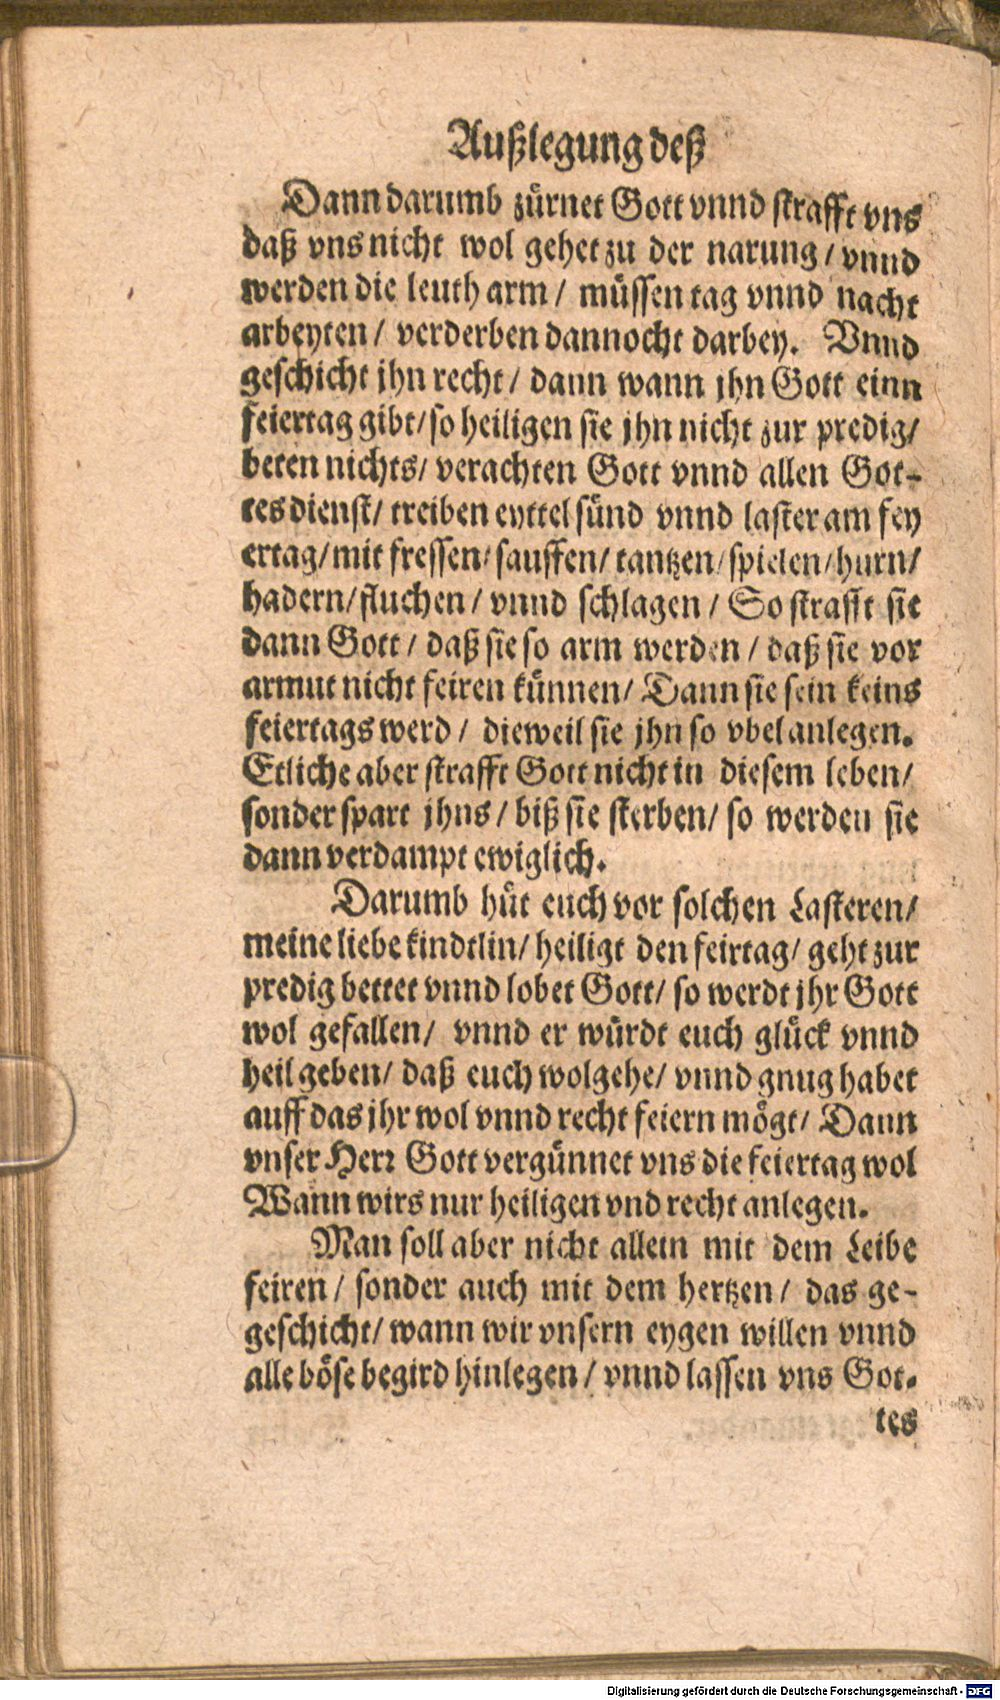 Außlegung deß
Dann darumb zürnet Gott vnnd strafft vns
daß vns nicht wol gehet zu der narung / vnnd
werden die leuth arm / müssen tag vnnd nacht
arbeyten / verderben dannocht darbey. Vnnd
geschicht jhn recht / dann wann jhn Gott einn
feiertag gibt / so heiligen sie jhn nicht zur predig /
beten nichts / verachten Gott vnnd allen Got-
tes dienst / treiben eyttel sünd vnnd laster am fey
ertag / mit fressen / sauffen / tantzen / spielen / hurn /
hadern / fluchen / vnnd schlagen / So strafft sie
dann Gott / daß sie so arm werden / daß sie vor
armut nicht feiren künnen / Dann sie sein keins
feiertags werd / dieweil sie jhn so vbel anlegen.
Etliche aber strafft Gott nicht in diesem leben /
sonder spart jhns / biß sie sterben / so werden sie
dann verdampt ewiglich.
Darumb hüt euch vor solchen Lasteren /
meine liebe kindtlin / heiligt den feirtag / geht zur
predig bettet vnnd lobet Gott / so werdt jhr Gott
wol gefallen / vnnd er würdt euch glück vnnd
heil geben / daß euch wolgehe / vnnd gnug habet
auff das jhr wol vnnd recht feiern mögt / Dann
vnser Herr Gott vergünnet vns die feiertag wol
Wann wirs nur heiligen vnd recht anlegen.
Man soll aber nicht allein mit dem Leibe
feiren / sonder auch mit dem hertzen / das ge-
geschicht / wann wir vnsern eygen willen vnnd
alle böse begird hinlegen / vnnd lassen vns Got-
tes
Digitalisierung gefördert durch die Deutsche Forschungsgemeinschaft - DFG